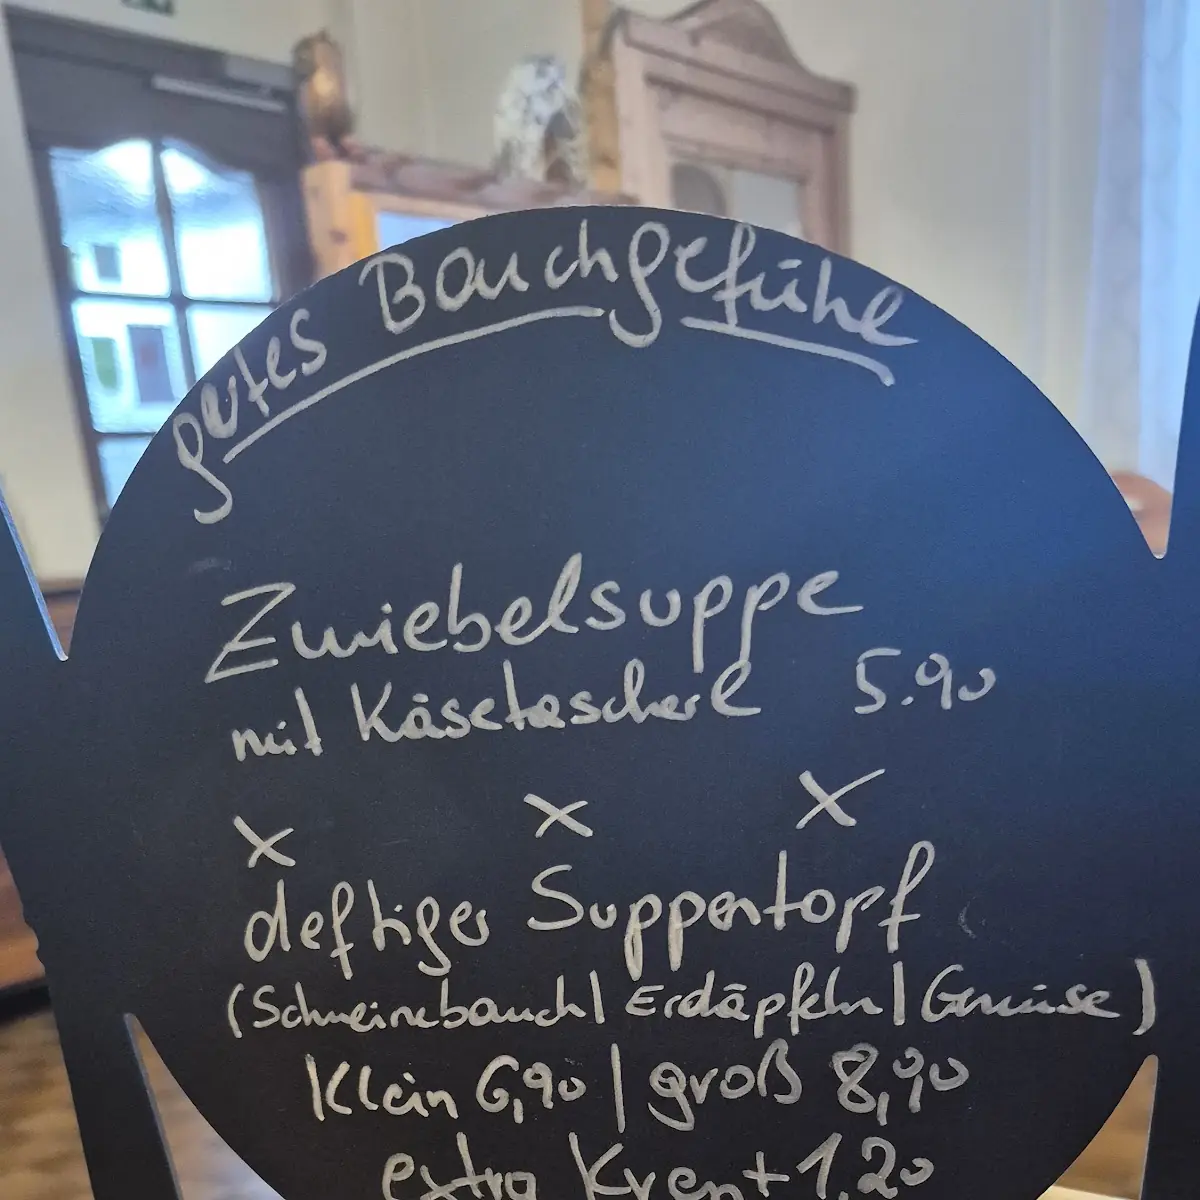 gutes Bauchgefühl
Zwiebelsuppe
mit Käsetascherl 5.90
x x x
deftiger Suppentopf
(Schweinebauch | Erdäpfeln | Gemüse)
Klein 6,90 | groß 8,90
extra Kren + 1,20